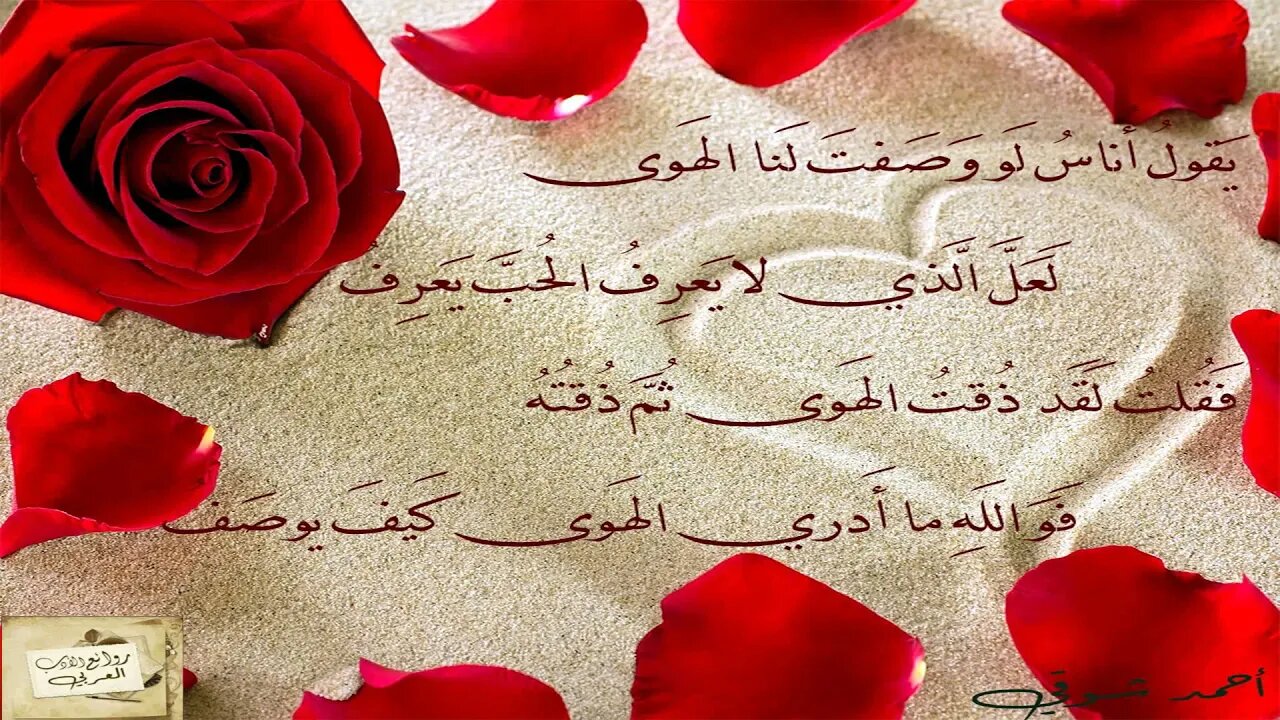 يَقولُ أُناسٌ لَو وَصَفتَ لَنا الهَوى
لَعَلَّ الَّذي لا يَعرِفُ الحُبَّ يَعرِفُ
فَقُلتُ لَقَد ذُقتُ الهَوى ثُمَّ ذُقتُهُ
فَوَاللَهِ ما أَدري الهَوى كَيفَ يوصَفُ
أحمد شوقي
روائع الأدب
العربي